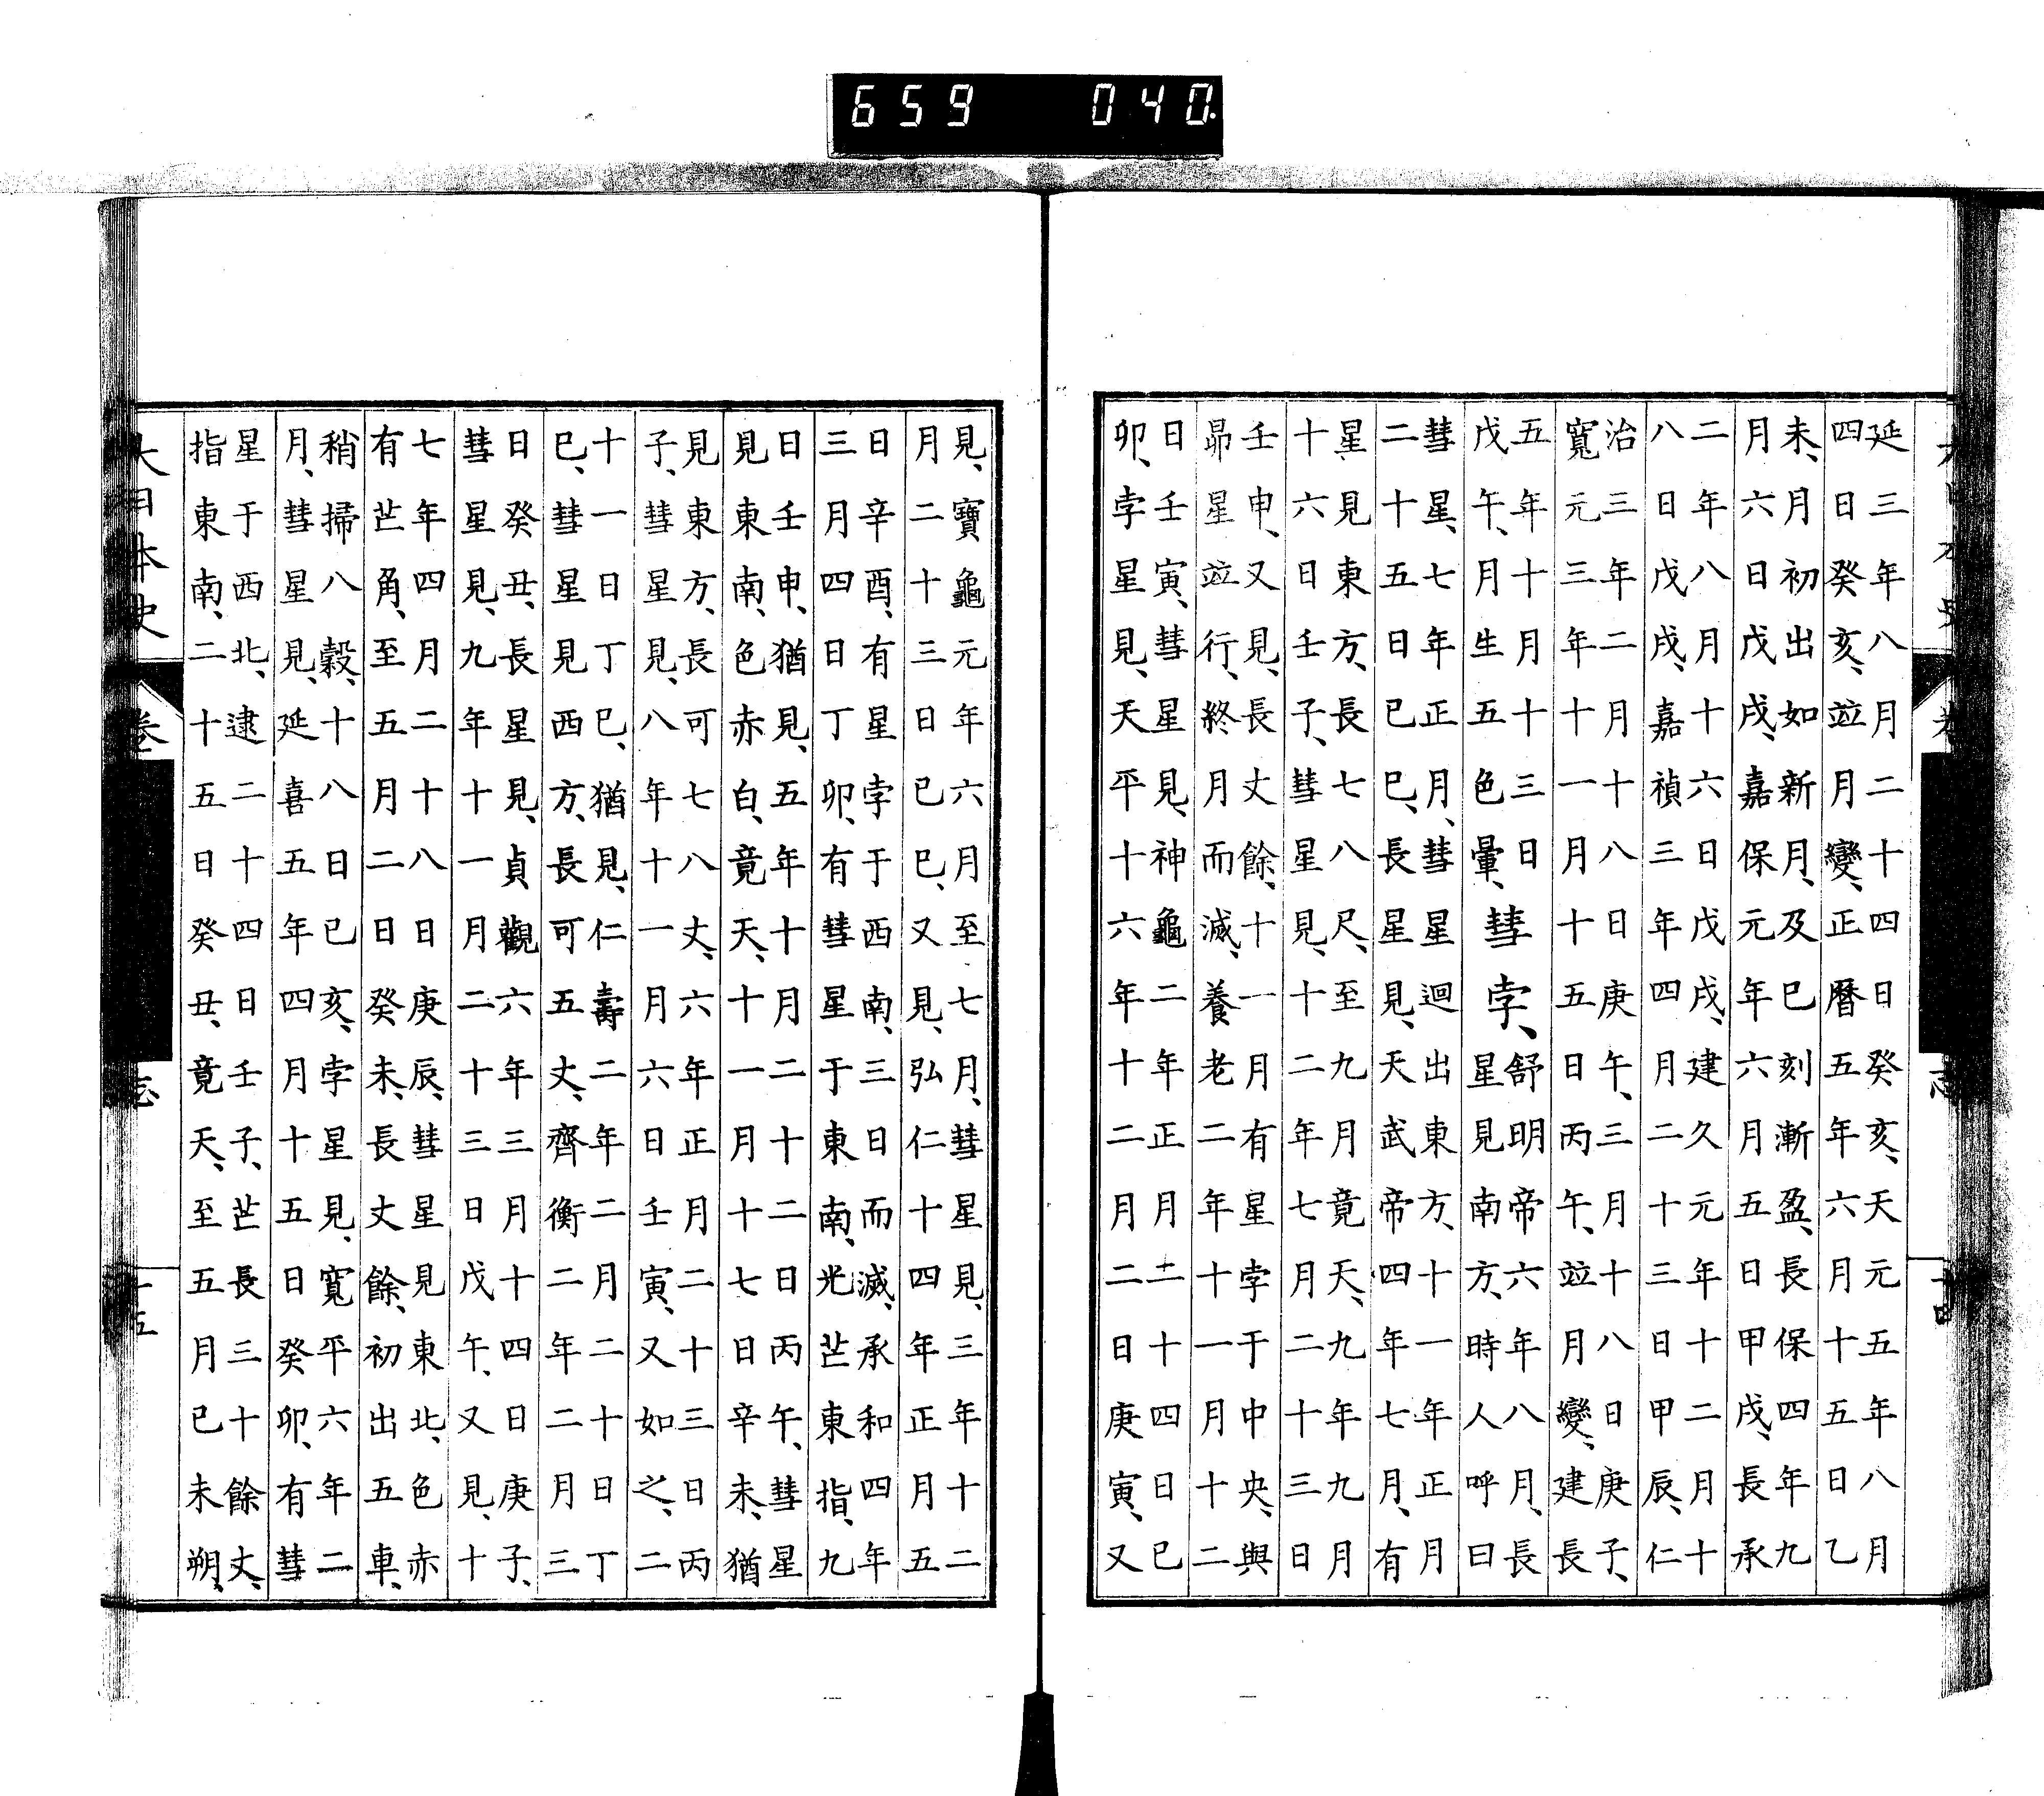 659 040
延三年八月二十四日癸亥、天元五年八月
四日癸亥、竝月變、正曆五年六月十五日乙
未、月初出如新月、及巳刻漸盈、長保四年九
月六日戊戌、嘉保元年六月五日甲戌、長承
二年八月十六日戊戌、建久元年十二月十
八日戊戌、嘉禎三年四月二十三日甲辰、仁
治三年二月十八日庚午、三月十八日庚子、
寬元三年十一月十五日丙午、竝月變、建長
五年十月十三日
戊午、月生五色暈、
彗孛、
舒明帝六年八月、長
星見南方、時人呼曰
彗星、七年正月、彗星迴出東方、十一年正月
二十五日己巳、長星見、天武帝四年七月、有
星見東方、長七八尺、至九月竟天、九年九月
十六日壬子、彗星見、十二年七月二十三日
壬申、又見、長丈餘、十一月有星孛于中央、與
昴星竝行、終月而滅、養老二年十一月十二
日壬寅、彗星見、神龜二年正月二十四日己
卯、孛星見、天平十六年十二月二日庚寅、又
見、寶龜元年六月至七月、彗星見、三年十二
月二十三日己巳、又見、弘仁十四年正月五
日辛酉、有星孛于西南、三日而滅、承和四年
三月四日丁卯、有彗星于東南、光芒東指、九
日壬申、猶見、五年十月二十二日丙午、彗星
見東南、色赤白、竟天、十一月十七日辛未、猶
見東方、長可七八丈、六年正月二十三日丙
子、彗星見、八年十一月六日壬寅、又如之、二
十一日丁巳、猶見、仁壽二年二月二十日丁
巳、彗星見西方、長可五丈、齊衡二年二月三
日癸丑、長星見、貞觀六年三月十四日庚子、
彗星見、九年十一月二十三日戊午、又見、十
七年四月二十八日庚辰、彗星見東北、色赤
有芒角、至五月二日癸未、長丈餘、初出五車、
稍掃八穀、十八日己亥、孛星見、寬平六年二
月、彗星見、延喜五年四月十五日癸卯、有彗
星于西北、逮二十四日壬子、芒長三十餘丈、
指東南、二十五日癸丑、竟天、至五月己未朔、